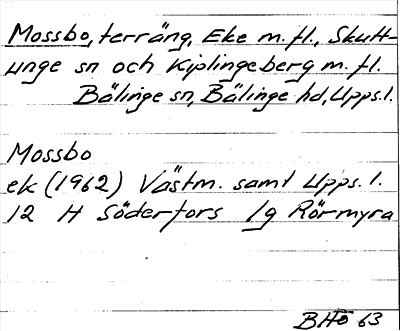 Mossbo, terräng, Eke m.fl., Skutt-
unge sn och Kiplingeberg m.fl.
Bälinge sn, Bälinge hd, Upps.l.
Mossbo
ek (1962) Västm. samt Upps. l.
12 H Söderfors 1g Rörmyra
BHö 63